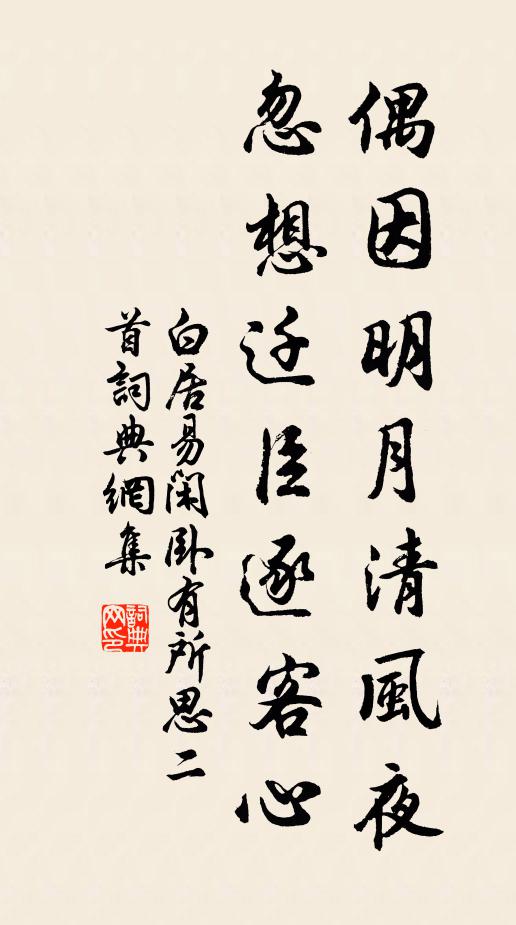 偶因明月清風夜
忽想迁臣逐客心
白居易閑卧有所思二
首詞典網集
詞典
网印